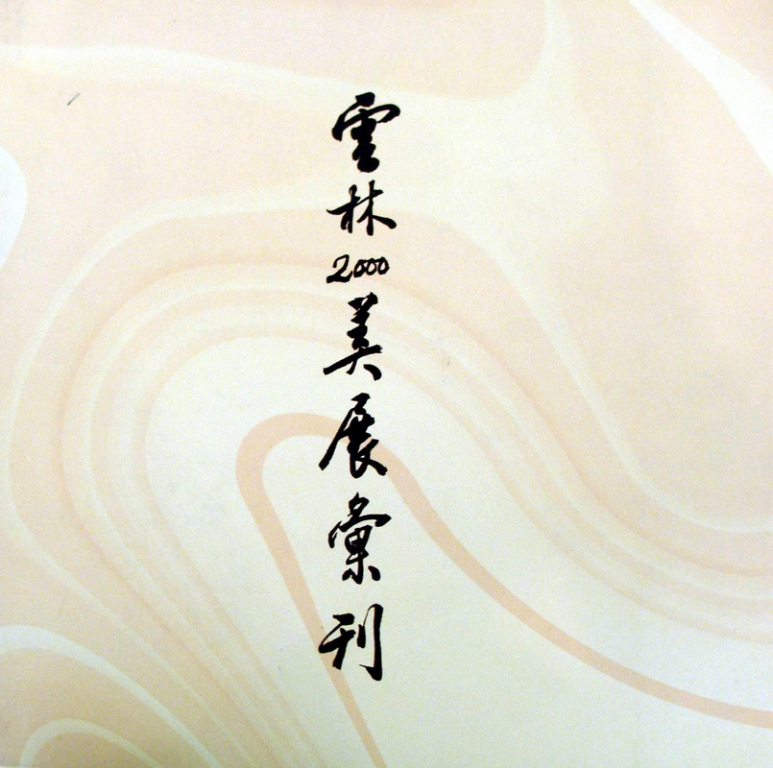 雲林2000美展彙刊